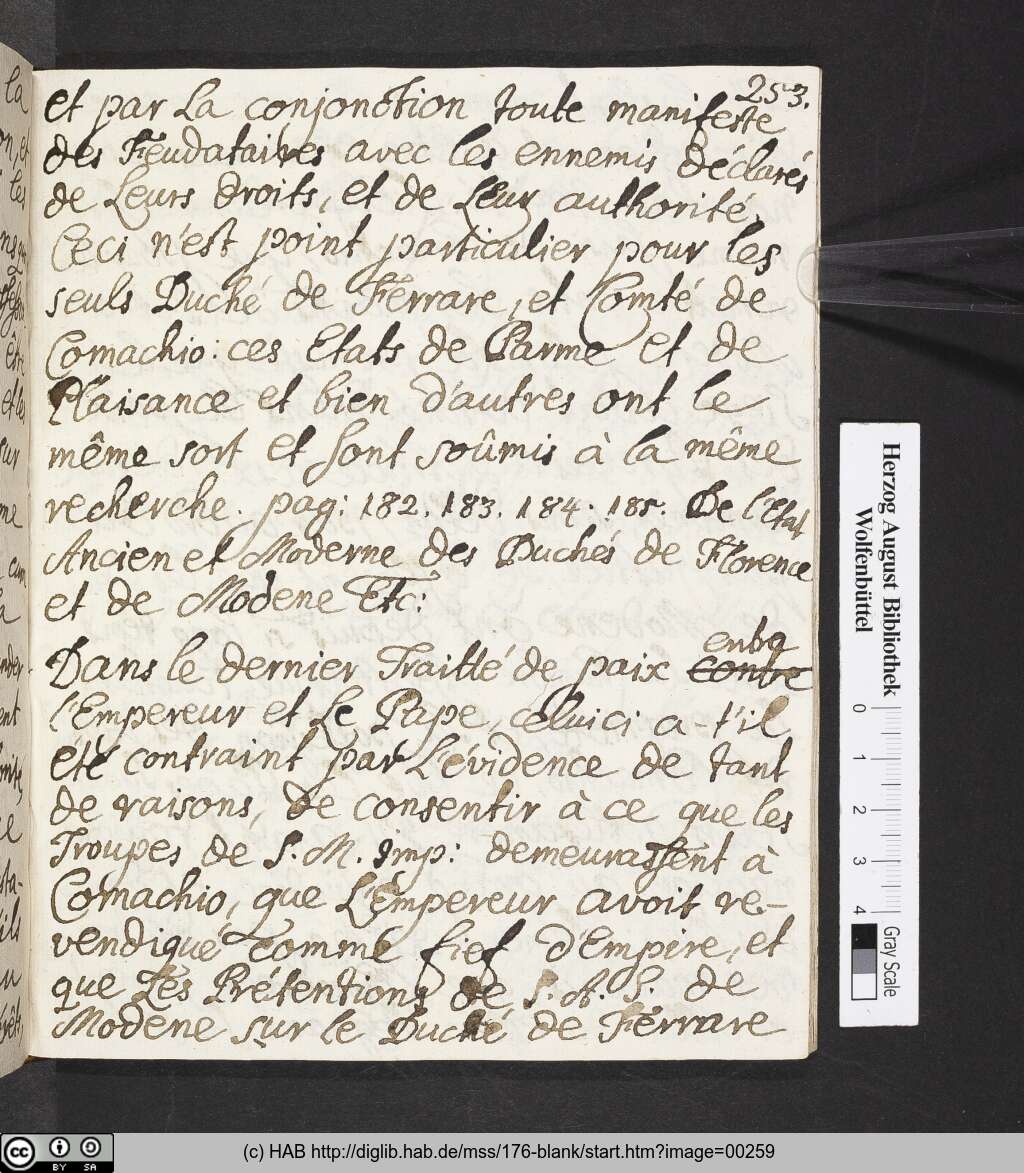 253.
et par La conjonction toute manifeste
des Feudataires avec les ennemis déclarés
de Leurs droits, et de Leur authorité,
Ceci n'est point particulier pour les
seuls Duché de Ferrare, et Comté de
Comachio: ces Etats de Parme et de
Plaisance et bien d'autres ont le
même sort et sont soûmis à la même
recherche. pag: 182. 183. 184. 185. De l'Etat
Ancien et Moderne des Duchés de Florence
et de Modene Etc:
entre
Dans le dernier Traitté de paix contre
l'Empereur et Le Pape, celuici a-t'il
été contraint par L'évidence de tant
de raisons, de consentir à ce que les
Troupes de S. M. Imp: demeurassent à
Comachio, que L'Empereur avoit re-
vendiqué comme fief d'Empire, et
que Les Prétentions de S. A. S. de
Modene sur le Duché de Ferrare
Herzog August Bibliothek
Wolfenbüttel
0 1 2 3 4
Gray Scale
cc BY SA
(c) HAB http://diglib.hab.de/mss/176-blank/start.htm?image=00259